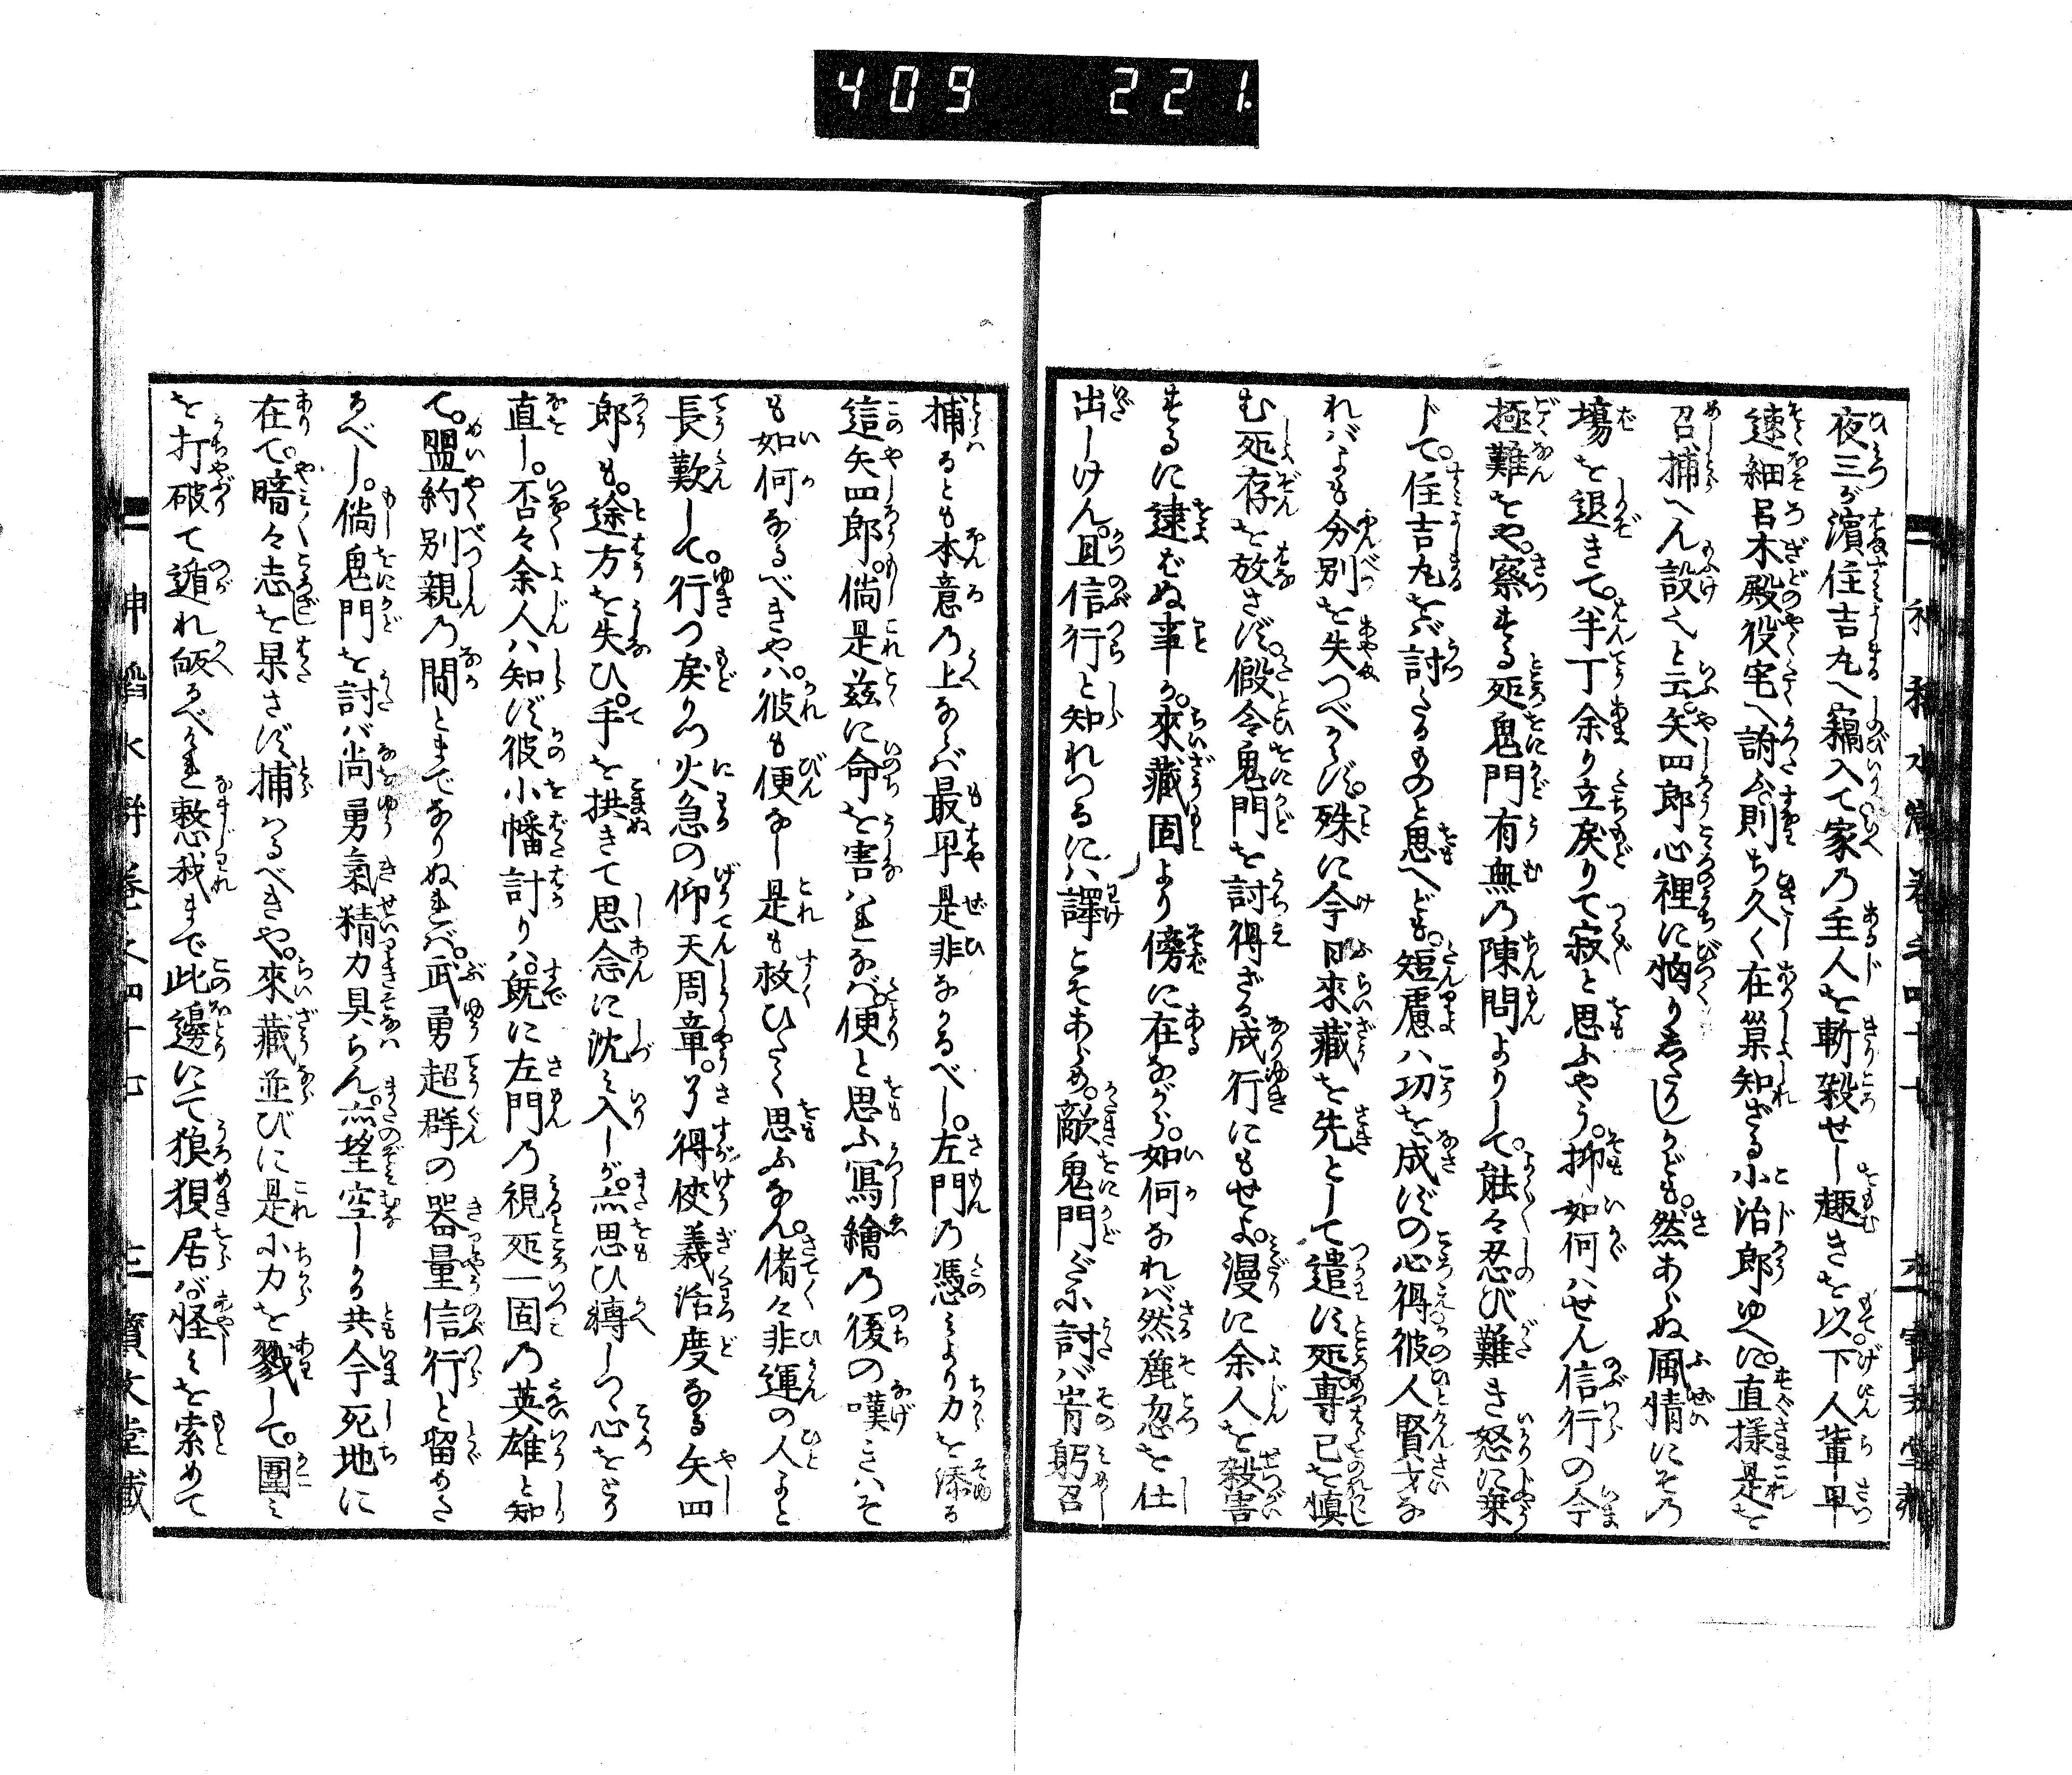 409 221.
夜三が濱住吉丸へ竊入て家乃主人を斬殺せし趣きを以下人輩早
速細呂木殿役宅へ訴ふ則ち久く在巣知ざる小治郎ゆへに直様是を
召捕へん設へと云矢四郎心裡に恟りあしかども。然あらぬ風情にその
塲を退きて。半丁余り立戻りて寂と思ふやう。抑如何ハせん信行の今
極難をや。察する処鬼門有無乃陳問よりして。能々忍び難き怒に乗
ドて。住吉丸をバ討たるものと思へども。短慮ハ功を成ずの心得彼人賢才な
れバよも分別を失つべからず。殊に今日來藏を先として遣す処専己を慎
む処存を放さず。假令鬼門を討得ざる成行にもせよ。漫に余人を殺害
するに逮ばぬ事か。來藏固より傍に在ながら。如何なれバ然麁忽を仕
出しけん。且信行と知れつるにハ譯こそあらめ。敵鬼門だに討バ肯躬召
捕るとも本意乃上ならバ最早是非なかるべし。左門乃憑みより力を添る
這矢四郎。倘是茲に命を害ハれなバ。便と思ふ寫繪乃後の嘆きハそ
も如何なるべきや。彼も便なし是も救ひたく思ふなん。偖々非運の人よと
長歎して。行つ戻りつ火急の仰天周章。了得俠義活度なる矢四
郎も。途方を失ひ。手を拱きて思念に沈み入しが。亦思ひ轉しつ心をとり
直し。否々余人ハ知ず彼小幡討りハ。既に左門乃視処一固乃英雄と知
て。盟約別親乃間とまでなりぬれバ。武勇超群の器量信行と畱めさ
るべし。倘鬼門を討バ尚勇氣精力具らん。亦望空しかる共今死地に
在て。暗々志を果さず捕はるべきや。來藏並びに是小力を戮して。圍ミ
を打破て遁れ皈るべけれ憖我まで此邊にて狼狽居バ怪ミを索めて
神稻水滸卷之四十七 三 寶文堂藏